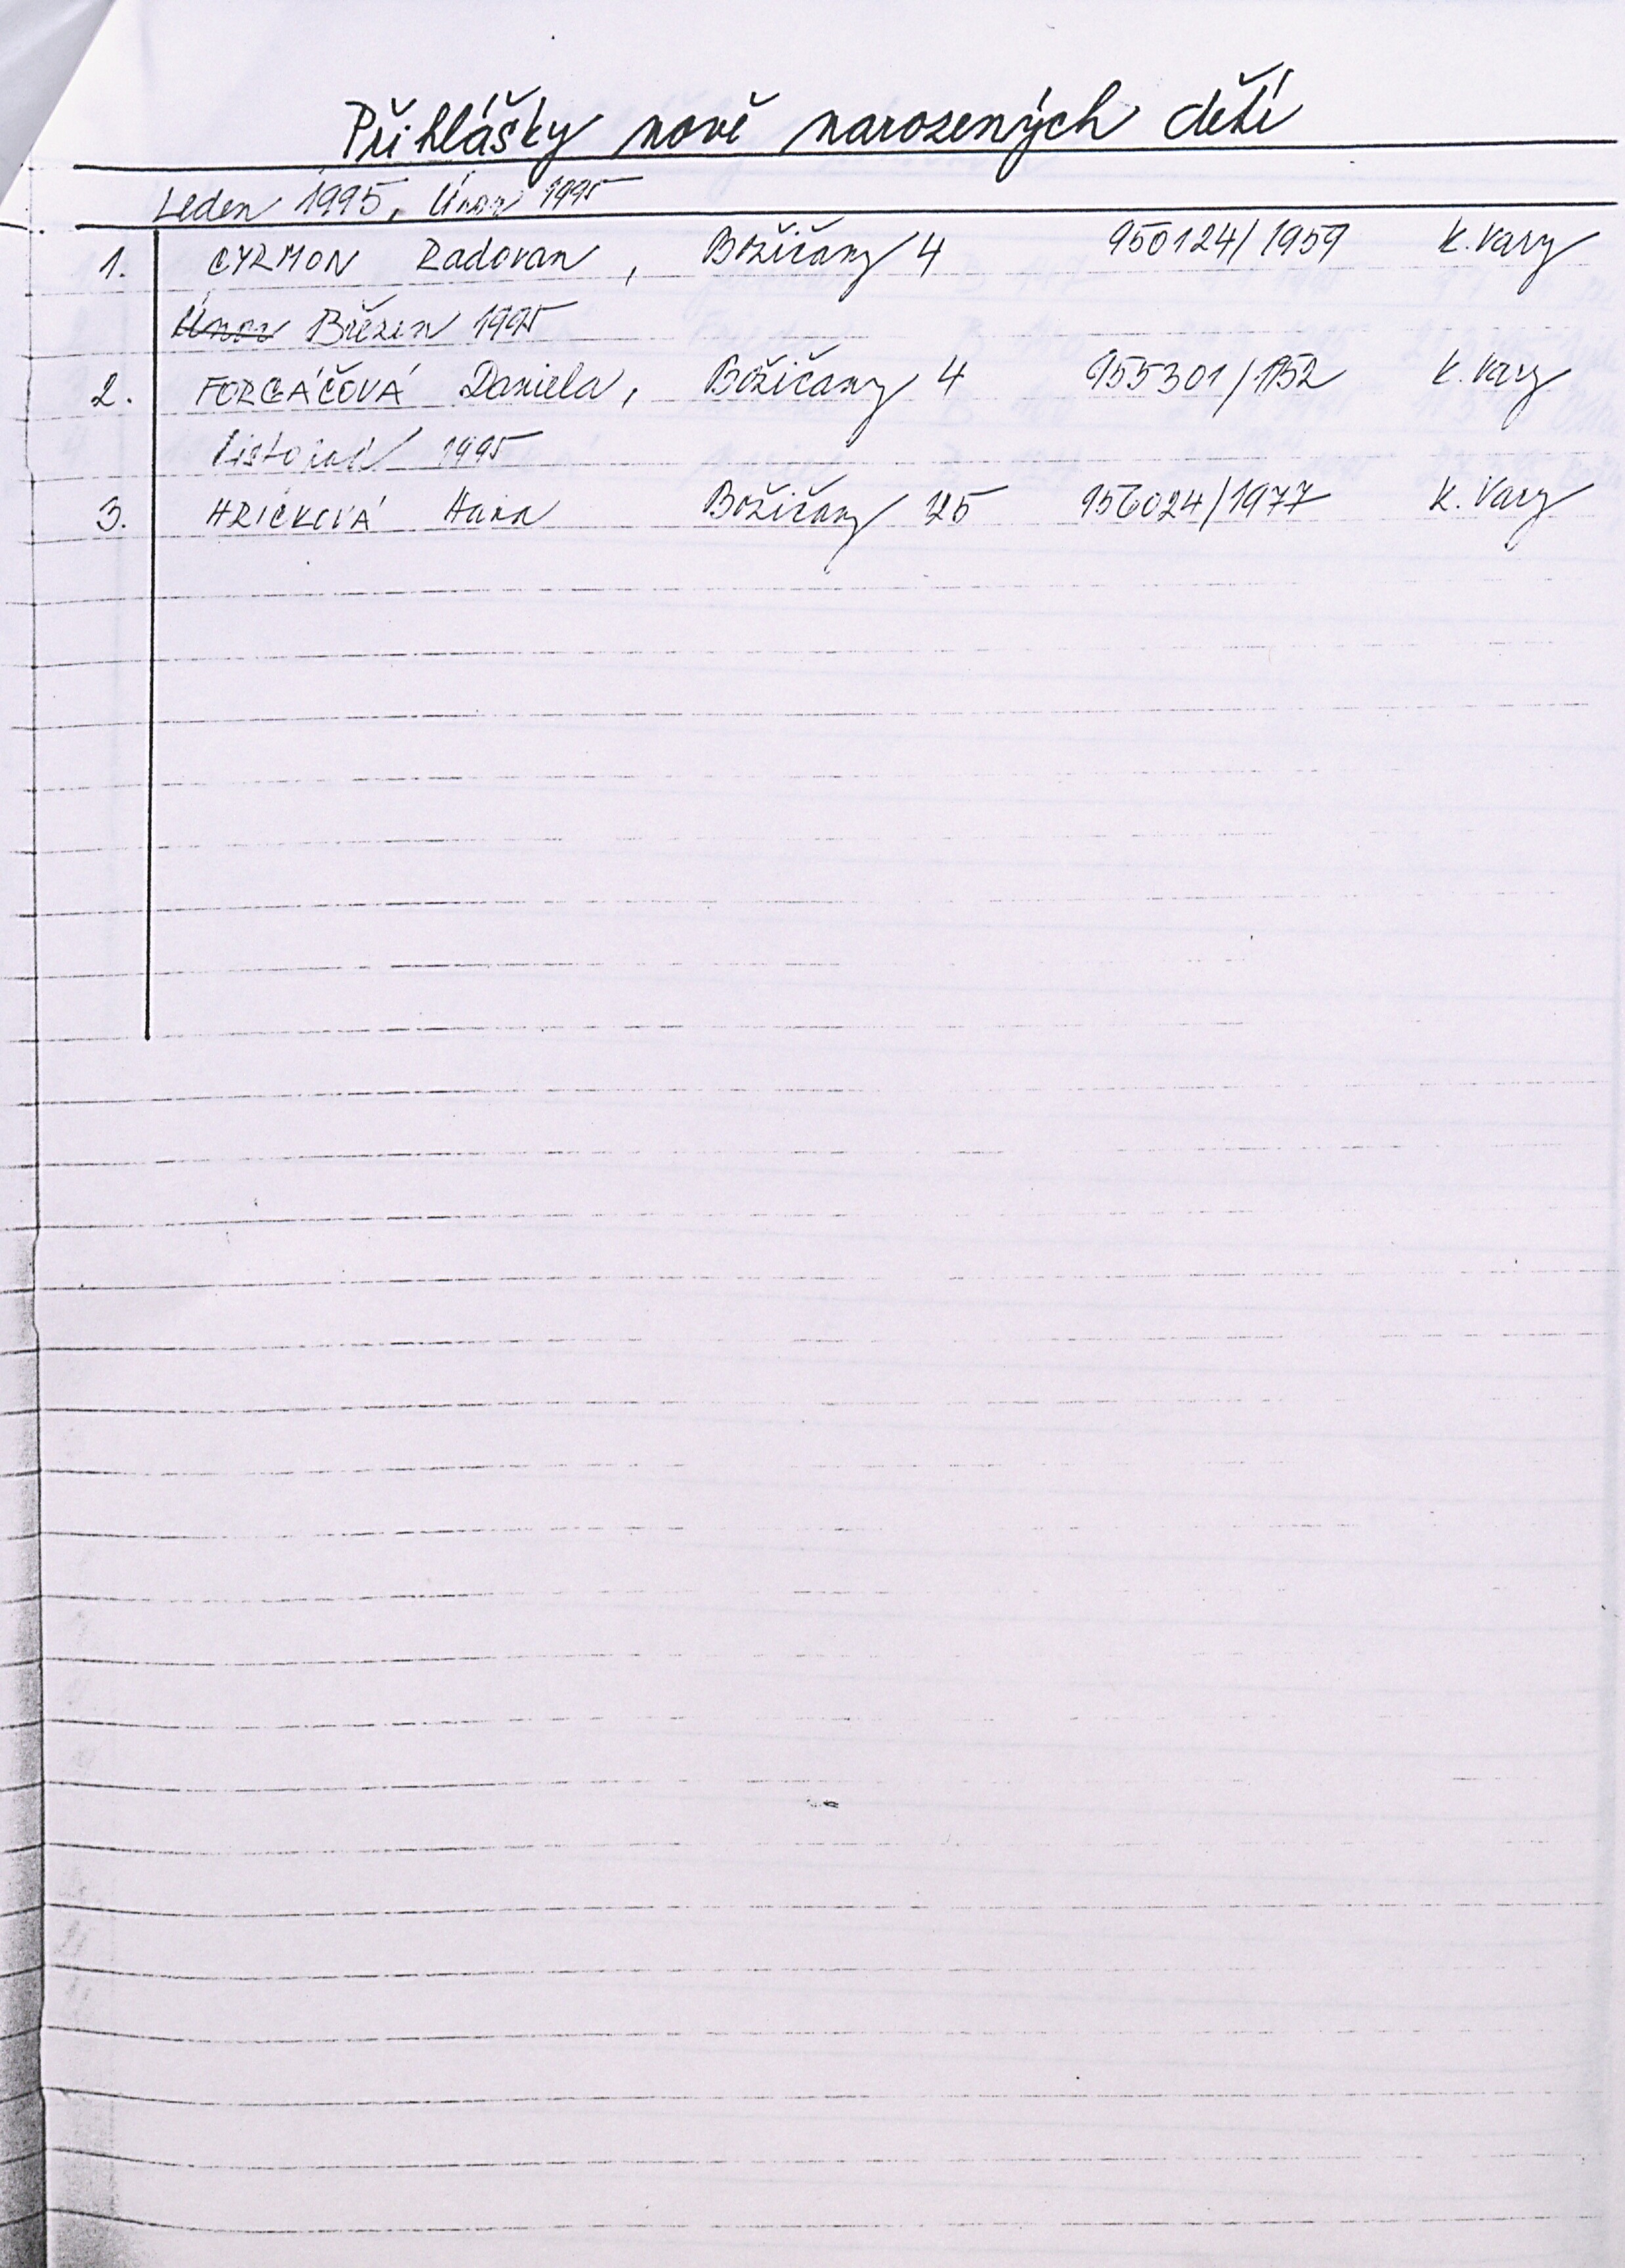 Přihlášky nově narozených dětí
Leden 1995, Únor 1995
1. CYRMON Radovan, Božičany 4 950124/1959 K. Vary
Únor Březen 1995
2. FORGÁČOVÁ Daniela, Božičany 4 955301/1952 K. Vary
Listopad 1995
3. Hana Božičany 125 956024/1977 K. Vary